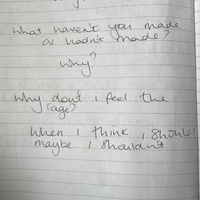 What haven't you made
or hadn't made?
Why?
Why don't I feel the
rage?
When I think I should
maybe I shouldn't